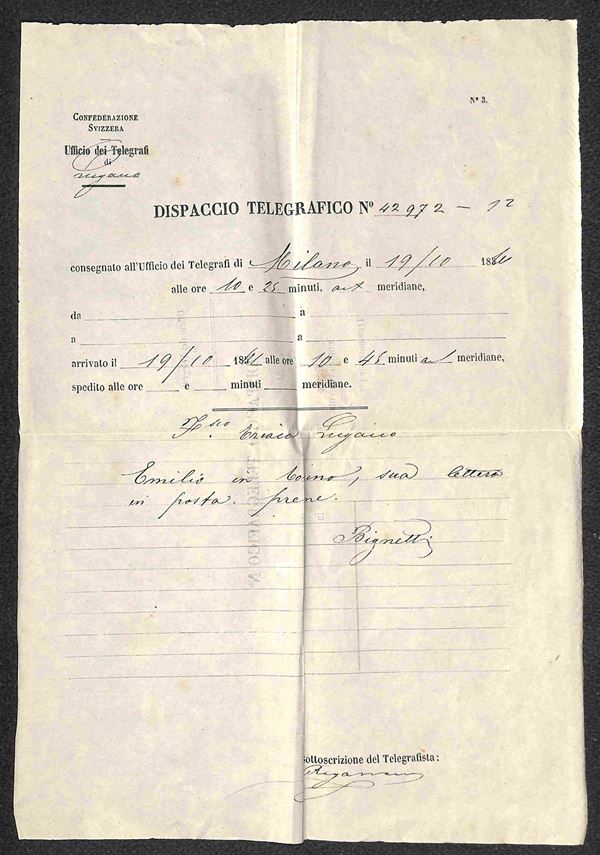 Nº 3.
CONFEDERAZIONE
SVIZZERA
Ufficio dei Telegrafi
di
Lugano
DISPACCIO TELEGRAFICO Nº 42972 — 12
consegnato all'Ufficio dei Telegrafi di Milano il 19/10 18
alle ore 10 e 25 minuti, ant meridiane,
da a
a a
arrivato il 19/10 18 alle ore 10 e 45 minuti ant meridiane,
spedito alle ore e minuti meridiane.
Fsco Lugano
Emilio in Torino, sua lettera
in posta.
Bignetti
Sottoscrizione del Telegrafista: